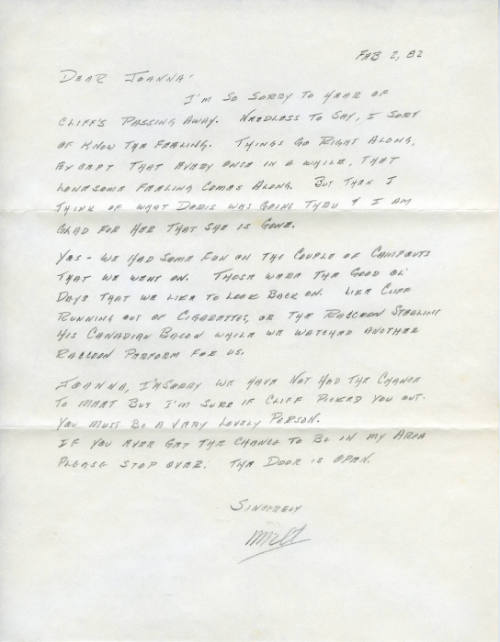 FEB 2, 82
DEAR JOANNA:
I'M SO SORRY TO HEAR OF
CLIFF'S PASSING AWAY. NEEDLESS TO SAY, I SORT
OF KNOW THE FEELING. THINGS GO RIGHT ALONG,
EXCEPT THAT EVERY ONCE IN A WHILE, THAT
LONESOME FEELING COMES ALONG. BUT THEN I
THINK OF WHAT DORIS WAS GOING THRU & I AM
GLAD FOR HER THAT SHE IS GONE.
YES - WE HAD SOME FUN ON THE COUPLE OF CAMPOUTS
THAT WE WENT ON. THOSE WERE THE GOOD OL'
DAYS THAT WE LIKE TO LOOK BACK ON. LIKE CLIFF
RUNNING OUT OF CIGARETTES, OR THE RACCOON STEALING
HIS CANADIAN BACON WHILE WE WATCHED ANOTHER
RACCOON PERFORM FOR US.
JOANNA, I'M SORRY WE HAVE NOT HAD THE CHANCE
TO MEET BUT I'M SURE IF CLIFF PICKED YOU OUT.
YOU MUST BE A VERY LOVELY PERSON.
IF YOU EVER GET THE CHANCE TO BE IN MY AREA
PLEASE STOP OVER. THE DOOR IS OPEN.
SINCERELY
Milt